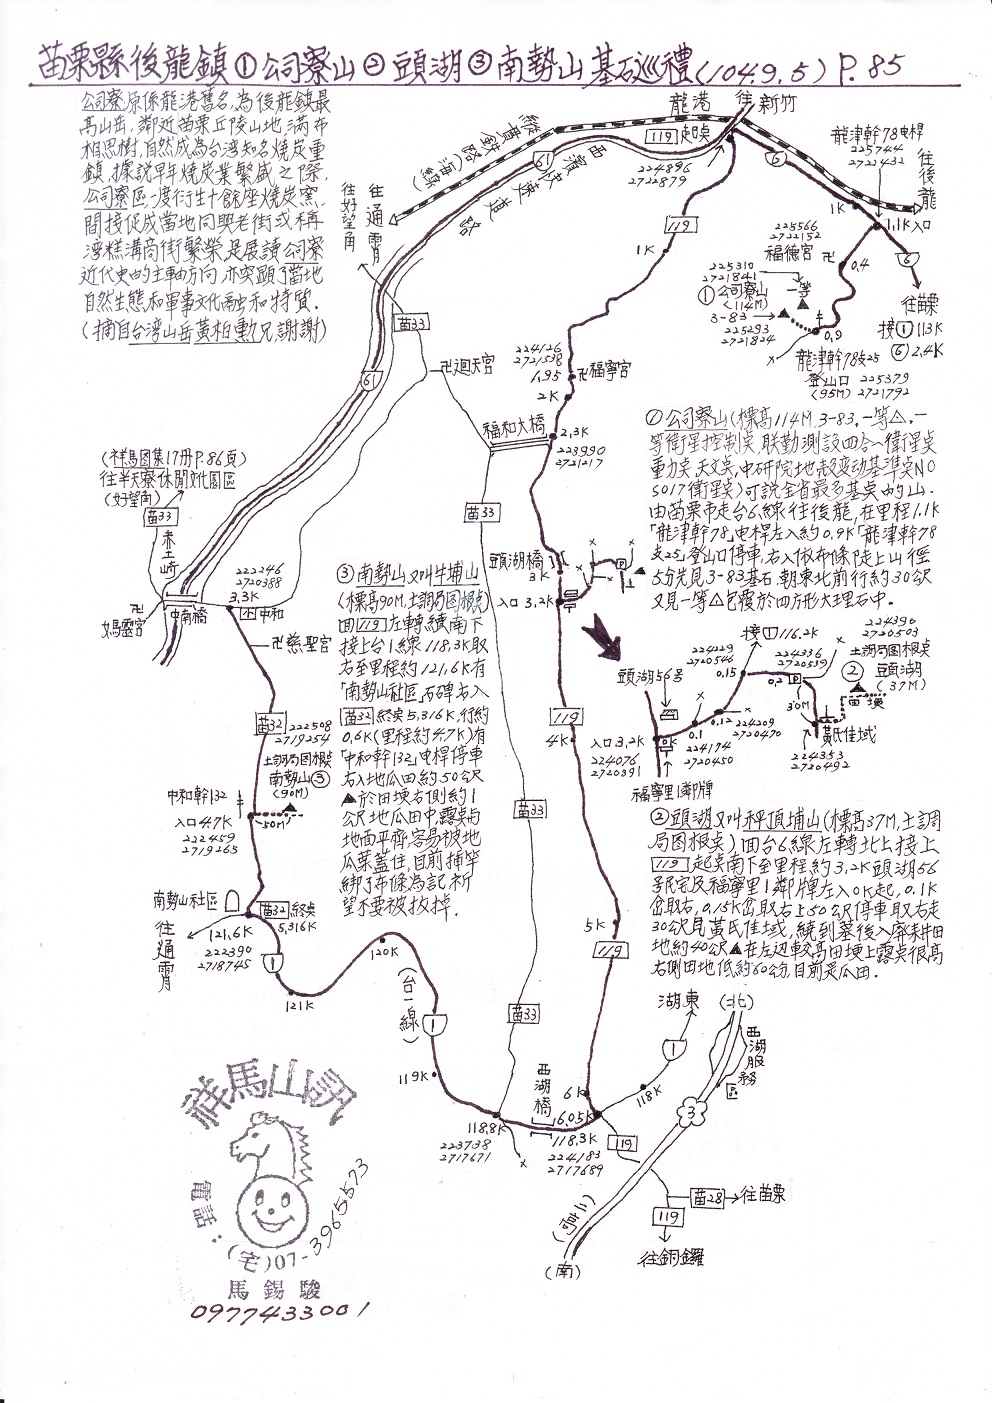 苗栗縣後龍鎮①公司寮山②頭湖③南勢山基石巡禮(104.9.5) P.85
公司寮原係龍港舊名,為後龍鎮最
高山岳,鄰近苗栗丘陵山地滿布
相思樹,自然成為台湾知名燒炭重
鎮,據說早年燒炭業繁盛之際,
公司寮區一度衍生十餘座燒炭窯,
間接促成當地同興老街或稱
湾糕溝商街繁榮,是展讀公司寮
近代史的主軸方向,亦突顯了當地
自然生態和軍事文化融和特質.
(摘自台湾山岳黃柏勳兄,謝謝)
縱貫鉄路(海線)
61
西濱快速道路
龍港
往新竹
119 起奌
224896
2722879
6
1K
龍津幹78电桿
225744
2722432
往後龍
1.1K入口
6
往苗栗
接① 113K
⑥ 2.4K
225566
2722152
福德宮 卍
0.4
225310
2721841
①公司寮山
(114M)
一等
3-83
225293
2721824
0.9
龍津幹78支25
登山口 225379
(95M) 2721792
往好望角
往通霄
苗33
卍迴天宮
61
119
1K
224126
2721538
1.95
卍福寧宮
2K
福和大橋
2.3K
223990
2721217
苗33
(祥馬図集17册P.86頁)
往半天寮休閒文化園區
(好望角)
苗33
赤土崎
222246
2720388
3.3K
中和
中南橋
卍
媽靈宮
卍慈聖宮
苗32
222508
2719254
土調局図根奌
南勢山③
(90M)
中和幹132
入口4.7K
222459
2719265
50M
南勢山社區
苗32 終奌
5.316K
往通霄
121.6K
222390
2718745
1
121K
120K
(台一線)
1
119K
③南勢山又叫牛埔山
(標高90M,土調局図根奌)
面119左轉續南下
接上台1線118.3K取
右至里程約121.6K有
「南勢山社區」石碑右入
苗32終奌5.316K,行約
0.6K(里程約4.7K)有
「中和幹132」电桿停車
右入地瓜田約50公尺
▲於田埂右側約1
公尺地瓜田中,露奌与
地面平齊,容易被地
瓜葉蓋住,目前揷竿
綁了布條為記,祈
望不要被拔掉.
頭湖橋
3K
入口 3.2K
119
4K
苗33
5K
119
苗33
西湖橋
6K
6.05K
118.8K
223738
2717671
118.3K
224183
2717689
①公司寮山(標高114M,3-83,一等△,一
等衛星控制奌,联勤測設四合一衛星奌
重力奌,天文奌,中研院地殼变动基準奌NO
S017衛星奌)可說全省最多基奌的山.
由苗栗市走台6線往後龍,在里程1.1K
「龍津幹78」电桿左入約0.9K「龍津幹78
支25」登山口停車,右入依布條陡上山徑
5分先見3-83基石,朝東北前行約30公尺
又見一等△包覆於四方形大理石中.
頭湖56号
入口 3.2K
0K
224076
2720391
福寧里1鄰牌
0.1
224174
2720450
0.12
224209
2720470
0.15
224229
2720546
接① 116.2K
0.2
P
224336
2720539
30M
224390
2720503
土調局図根奌
② 頭湖
(37M)
田埂
黃氏佳域
224353
2720492
②頭湖又叫秤頂埔山(標高37M,土調
局図根奌)面台6線左轉北上接上
119起奌南下至里程約3.2K頭湖56
号民宅及福寧里1鄰牌左入0K起,0.1K
岔取右,0.15K岔取右上50公尺停車取右走
30公尺見黃氏佳域,繞到墓後入廢耕田
地約40公尺▲在左边較高田埂上露奌很高
右側田地低約60公分,目前是瓜田.
湖東
1
118K
(北)
西湖服務區
3
119
苗28→往苗栗
119
往銅鑼
(二高)
(南)
祥馬山訊
電話:(宅)07-3965573
馬錫駿
0977433001